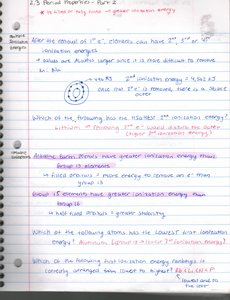 2.3 Period Properties - Part 2
* full orbitals → greater ionization energy
Multiple
Ionization
Energies
After the removal of 1st e⁻, elements can have 2nd, 3rd or 4th
ionization energies
→ values are always larger since it is more difficult to remove
Ex. Na
→ 496 KJ
2nd ionization energy = 4,562 KJ
once that 1st e⁻ is removed, there is a stable
octet
Which of the following has the highest 2nd ionization energy?
Lithium → removing 2nd e⁻ would disrupt the outer
higher 2nd ionization energy
Ionization
Alkaline Earth Metals have greater ionization energy than
Group 13 elements
→ filled orbitals / more energy to remove an e⁻ than
group 13
Group 15 elements have greater ionization energy than
Group 16
→ half filled orbitals / greater stability
Which of the following atoms has the lowest first ionization
energy? Aluminum (group 13) → lower 1st ionization energy
Which of the following first ionization energy rankings
is correctly arranged from lowest to highest?
lowest and to